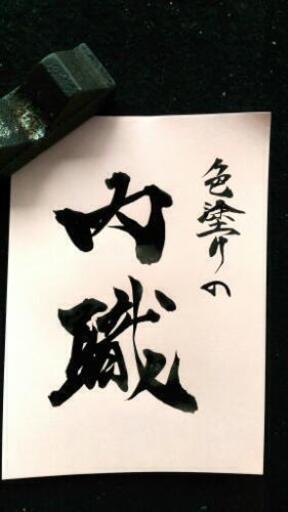 色塗りの
内職